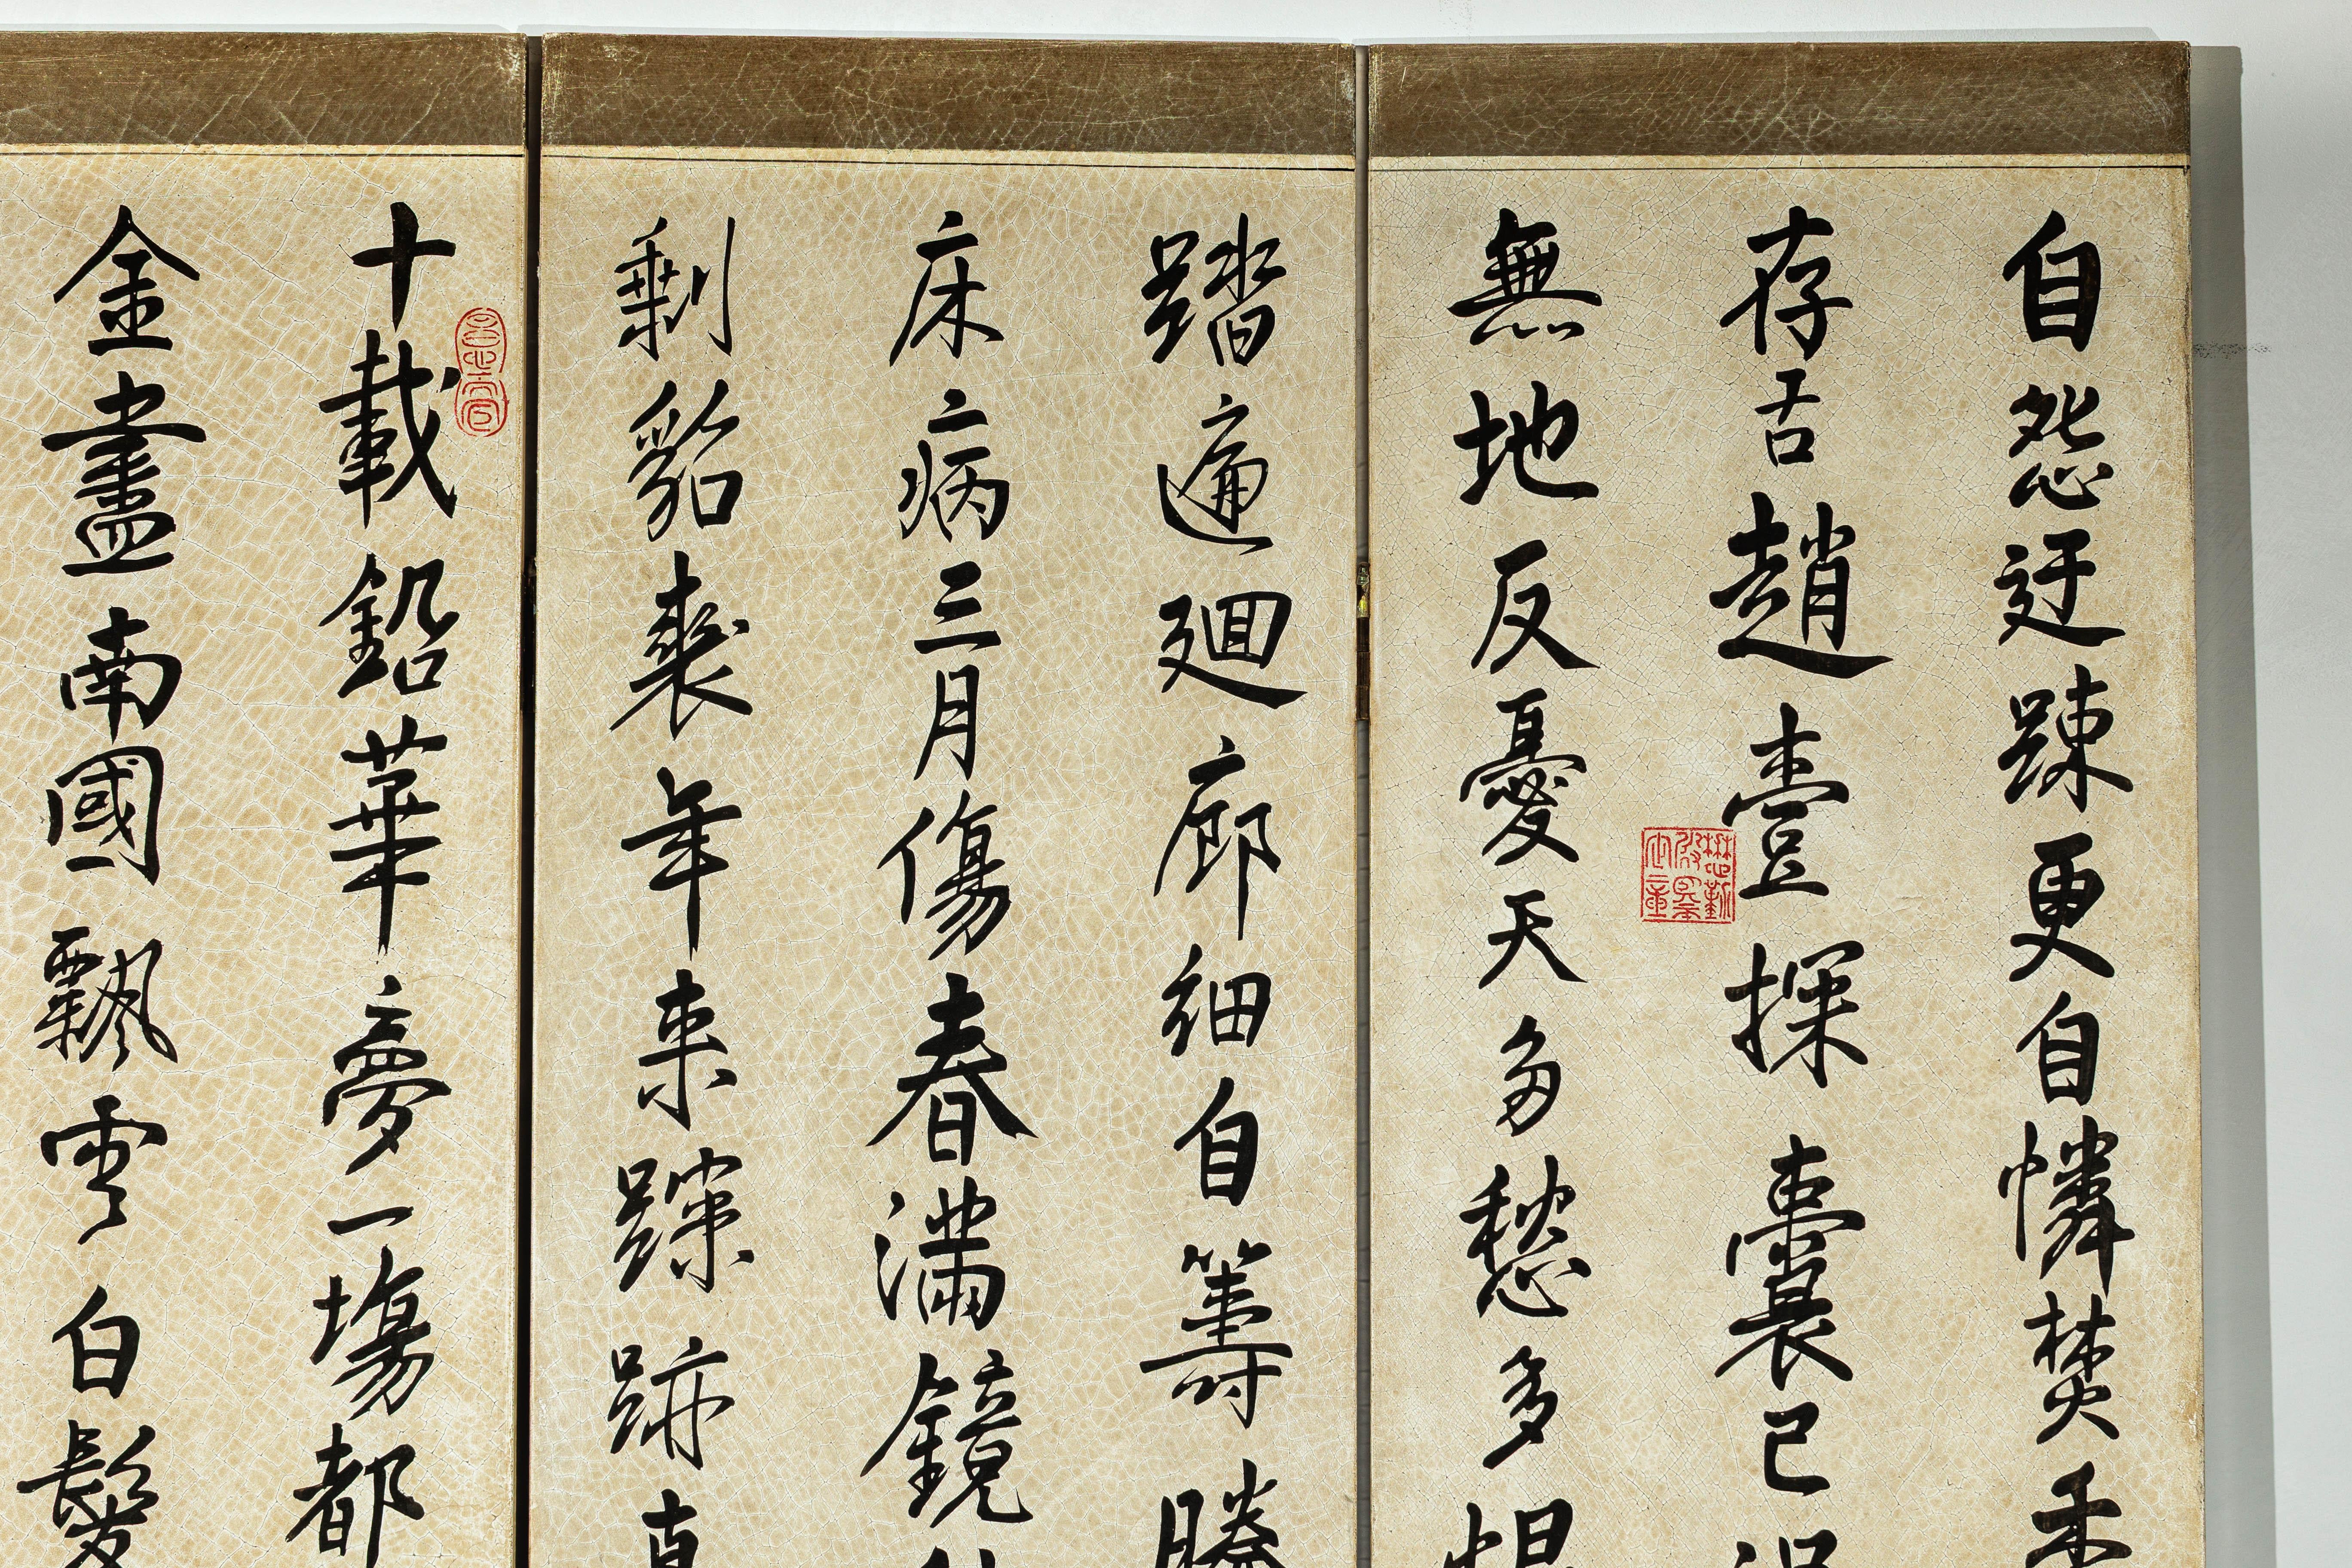 自怨迂疎更自憐焚
存舌趙壹探囊已
無地反憂天多愁多
踏遍廻廊細自籌
床病三月傷春滿鏡
剩貂裘年来蹤跡
十載鉛華夢一場都
金盡南國飄零白髮